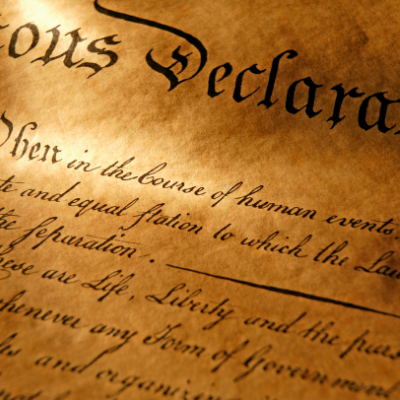 ous Declara
When in the Course of human events.
te and equal station to which the Law
the separation.
hese are Life, Liberty and the purs
whenever any Form of Government
and organizin